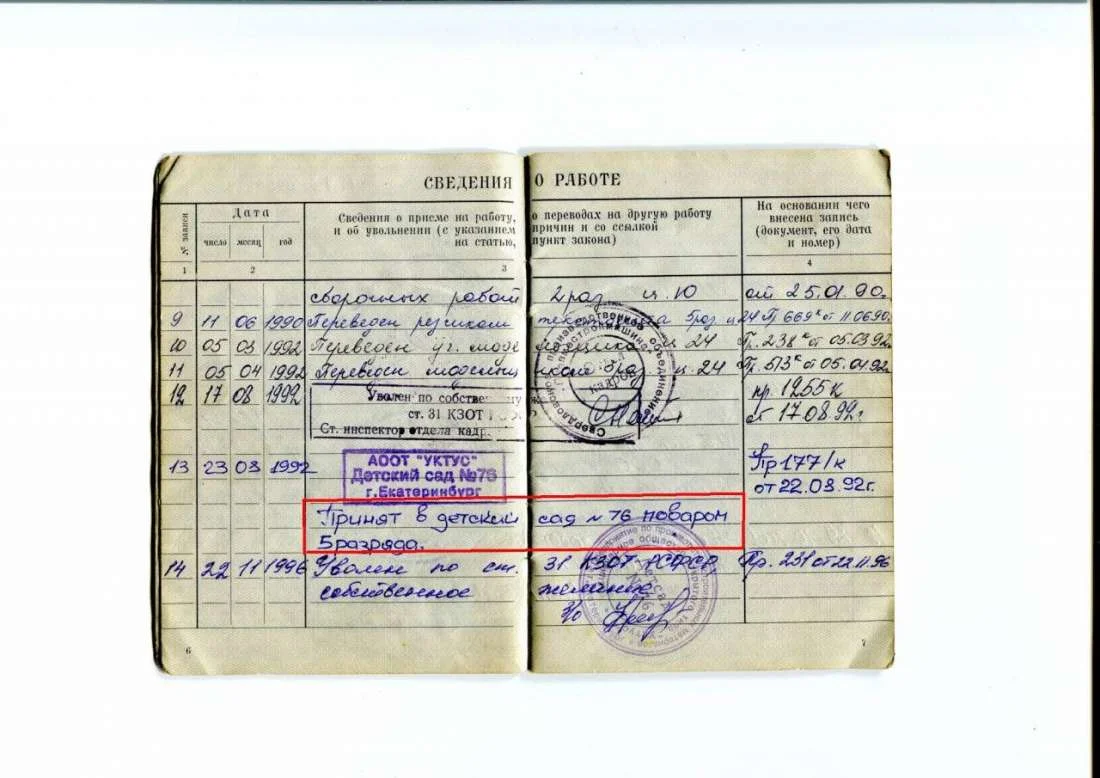 СВЕДЕНИЯ О РАБОТЕ
№ записи
Дата
число месяц год
Сведения о приеме на работу, о переводах на другую работу
и об увольнении (с указанием причин и со ссылкой
на статью, пункт закона)
На основании чего
внесена запись
(документ, его дата
и номер)
1 2 3 4
сборочных работ 2 раз ц. 10 от 25.01.90г.
9 11 06 1990 Переведен резчиком 5 раз. ц 24 Пр 669к от 11.06.90.
10 05 03 1992 Переведен ц 24 Пр. 238к от 05.03.92г.
11 05 04 1992 Переведен 5 раз. ц. 24 Пр. 513к от 05.04.92г
12 17 08 1992 Уволен по собственному
ст. 31 КЗОТ
Ст. инспектор отдела кадр.
пр. 1255к
от 17.08.92г
Свердловское производственное объединение
кадров
13 23 08 1992
АООТ "УКТУС"
Детский сад №76
г.Екатеринбург
Пр 177/к
от 22.08.92г.
Принят в детский сад № 76 поваром
5 разряда.
14 22 11 1996 Уволен по ст. 31 КЗОТ РСФСР Пр. 231 от 22.11.96
собственное желание
6 7